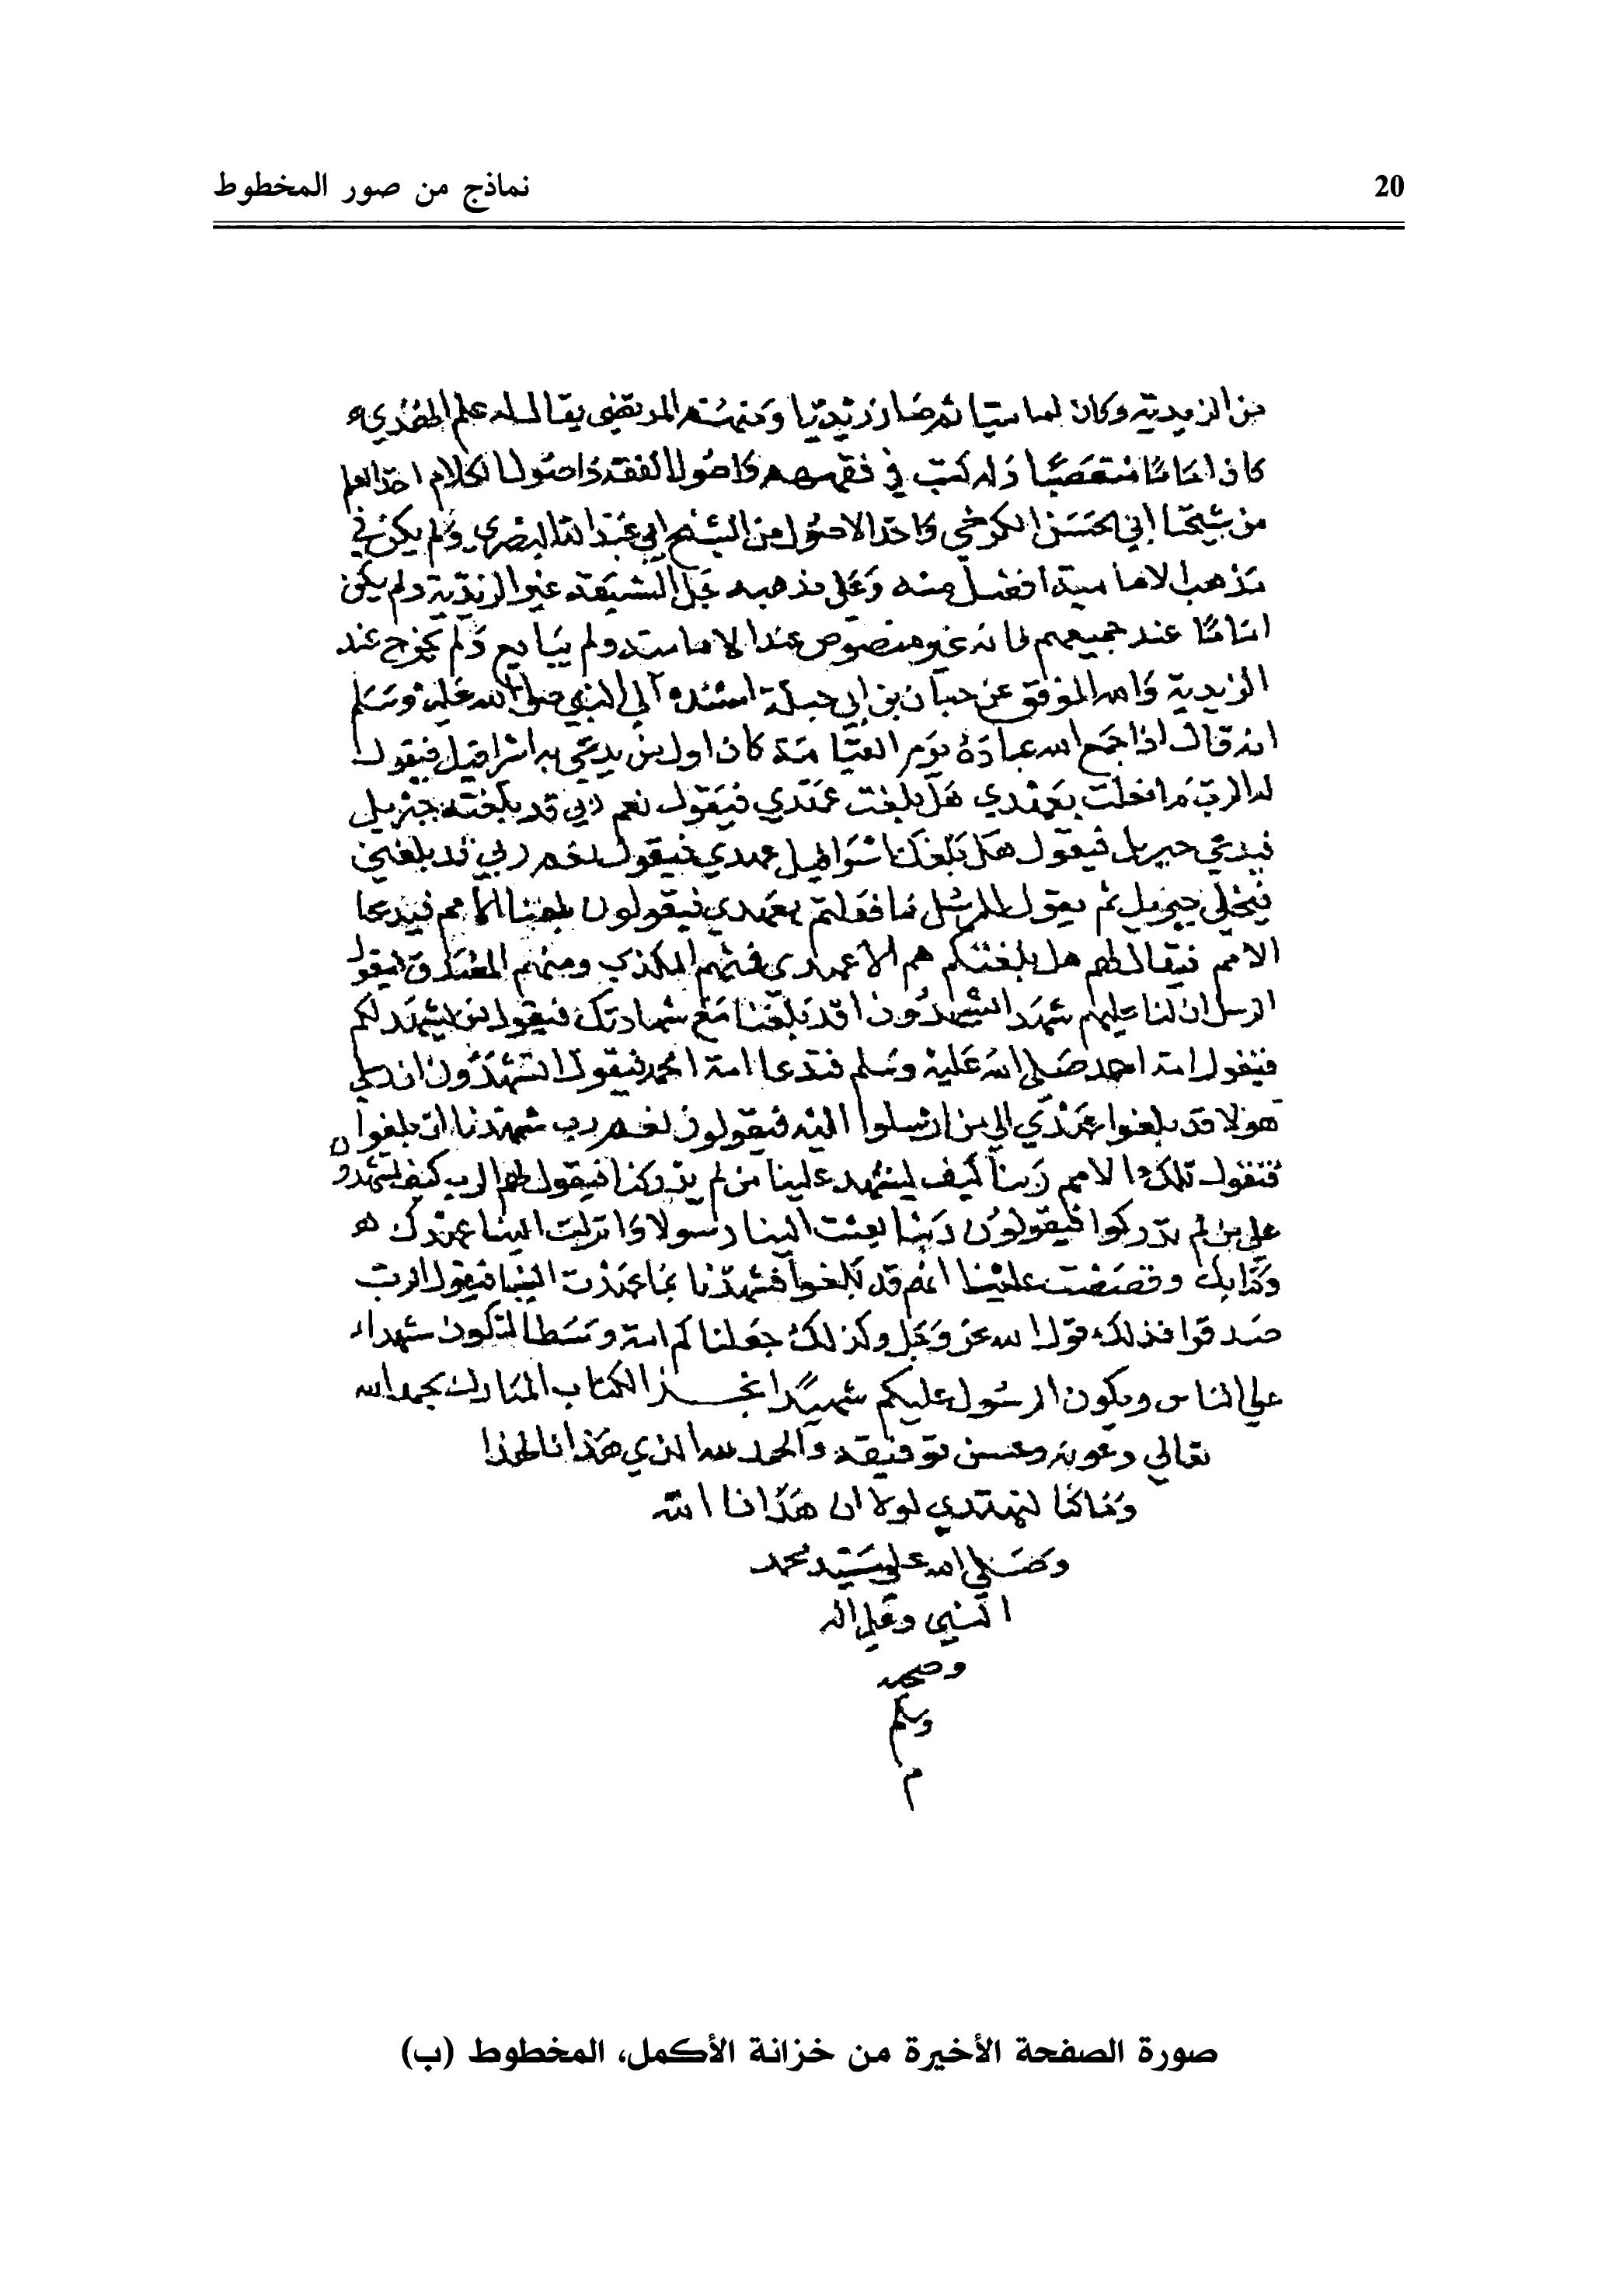 20
نماذج من صور المخطوط
من الزيدية وكان اماميا ثم صار زيديا ومنهم المرتضى يقال له علم الهدى
كان اماما متعصبا وله كتب في فقههم واصول الفقه واصول الكلام اخذ العلم
من شيخنا ابي الحسن الكرخي واخذ الاصول من الشيخ ابي عبد الله البصري ولم يكن في
مذهب الامامية افضل منه وعلى مذهبه جل الشيعة غير الزيدية ولم يكن
اماما عند جميعهم لانه غير منصوص عند الامامية ولم يبايع ولم يخرج عند
الزيدية والله الموفق عن حبان بن ابي جبلة اسنده الى النبي صلى الله عليه وسلم
انه قال اذا جمع الله عباده يوم القيامة كان اول من يدعى به اسرافيل فيقول
له الرب ما فعلت بعهدي هل بلغت عهدي فيقول نعم ربي قد بلغته جبريل
فيدعى جبريل فيقول هل بلغك اسرافيل عهدي فيقول نعم ربي قد بلغني
فيخلى جبريل ثم يقول للرسل ما فعلتم بعهدي فيقولون بلغنا الامم فيدعا
الامم فيقال لهم هل بلغتكم الرسل عهدي فمنهم المكذب ومنهم المصدق فيقول
الرسل ان لنا عليهم شهدا يشهدون ان قد بلغنا مع شهادتك فيقول من يشهد لكم
فيقول امة احمد صلى الله عليه وسلم فتدعا امة احمد فيقول اتشهدون ان رسلي
هولا قد بلغوا عهدي الى من ارسلوا اليه فيقولون نعم رب شهدنا ان بلغوا
فتقول تلك الامم ربنا كيف يشهد علينا من لم يدركنا فيقول لهم الرب كيف تشهدون
على من لم تدركوا فيقولون ربنا بعثت الينا رسولا وانزلت الينا عهدك
وكتابك وقصصت علينا انهم قد بلغوا فشهدنا بما عهدت الينا فيقول الرب
صدقوا فذلك قول الله عز وجل وكذلك جعلناكم امة وسطا لتكون شهداء
على الناس ويكون الرسول عليكم شهيدا نجز الكتاب المبارك بحمد الله
تعالى وعونه وحسن توفيقه والحمد لله الذي هدانا لهذا
وما كنا لنهتدي لولا ان هدانا الله
وصلى الله على سيد محمد
النبي وعلى اله
وصحبه
وسلم
م
صورة الصفحة الأخيرة من خزانة الأكمل، المخطوط (ب)